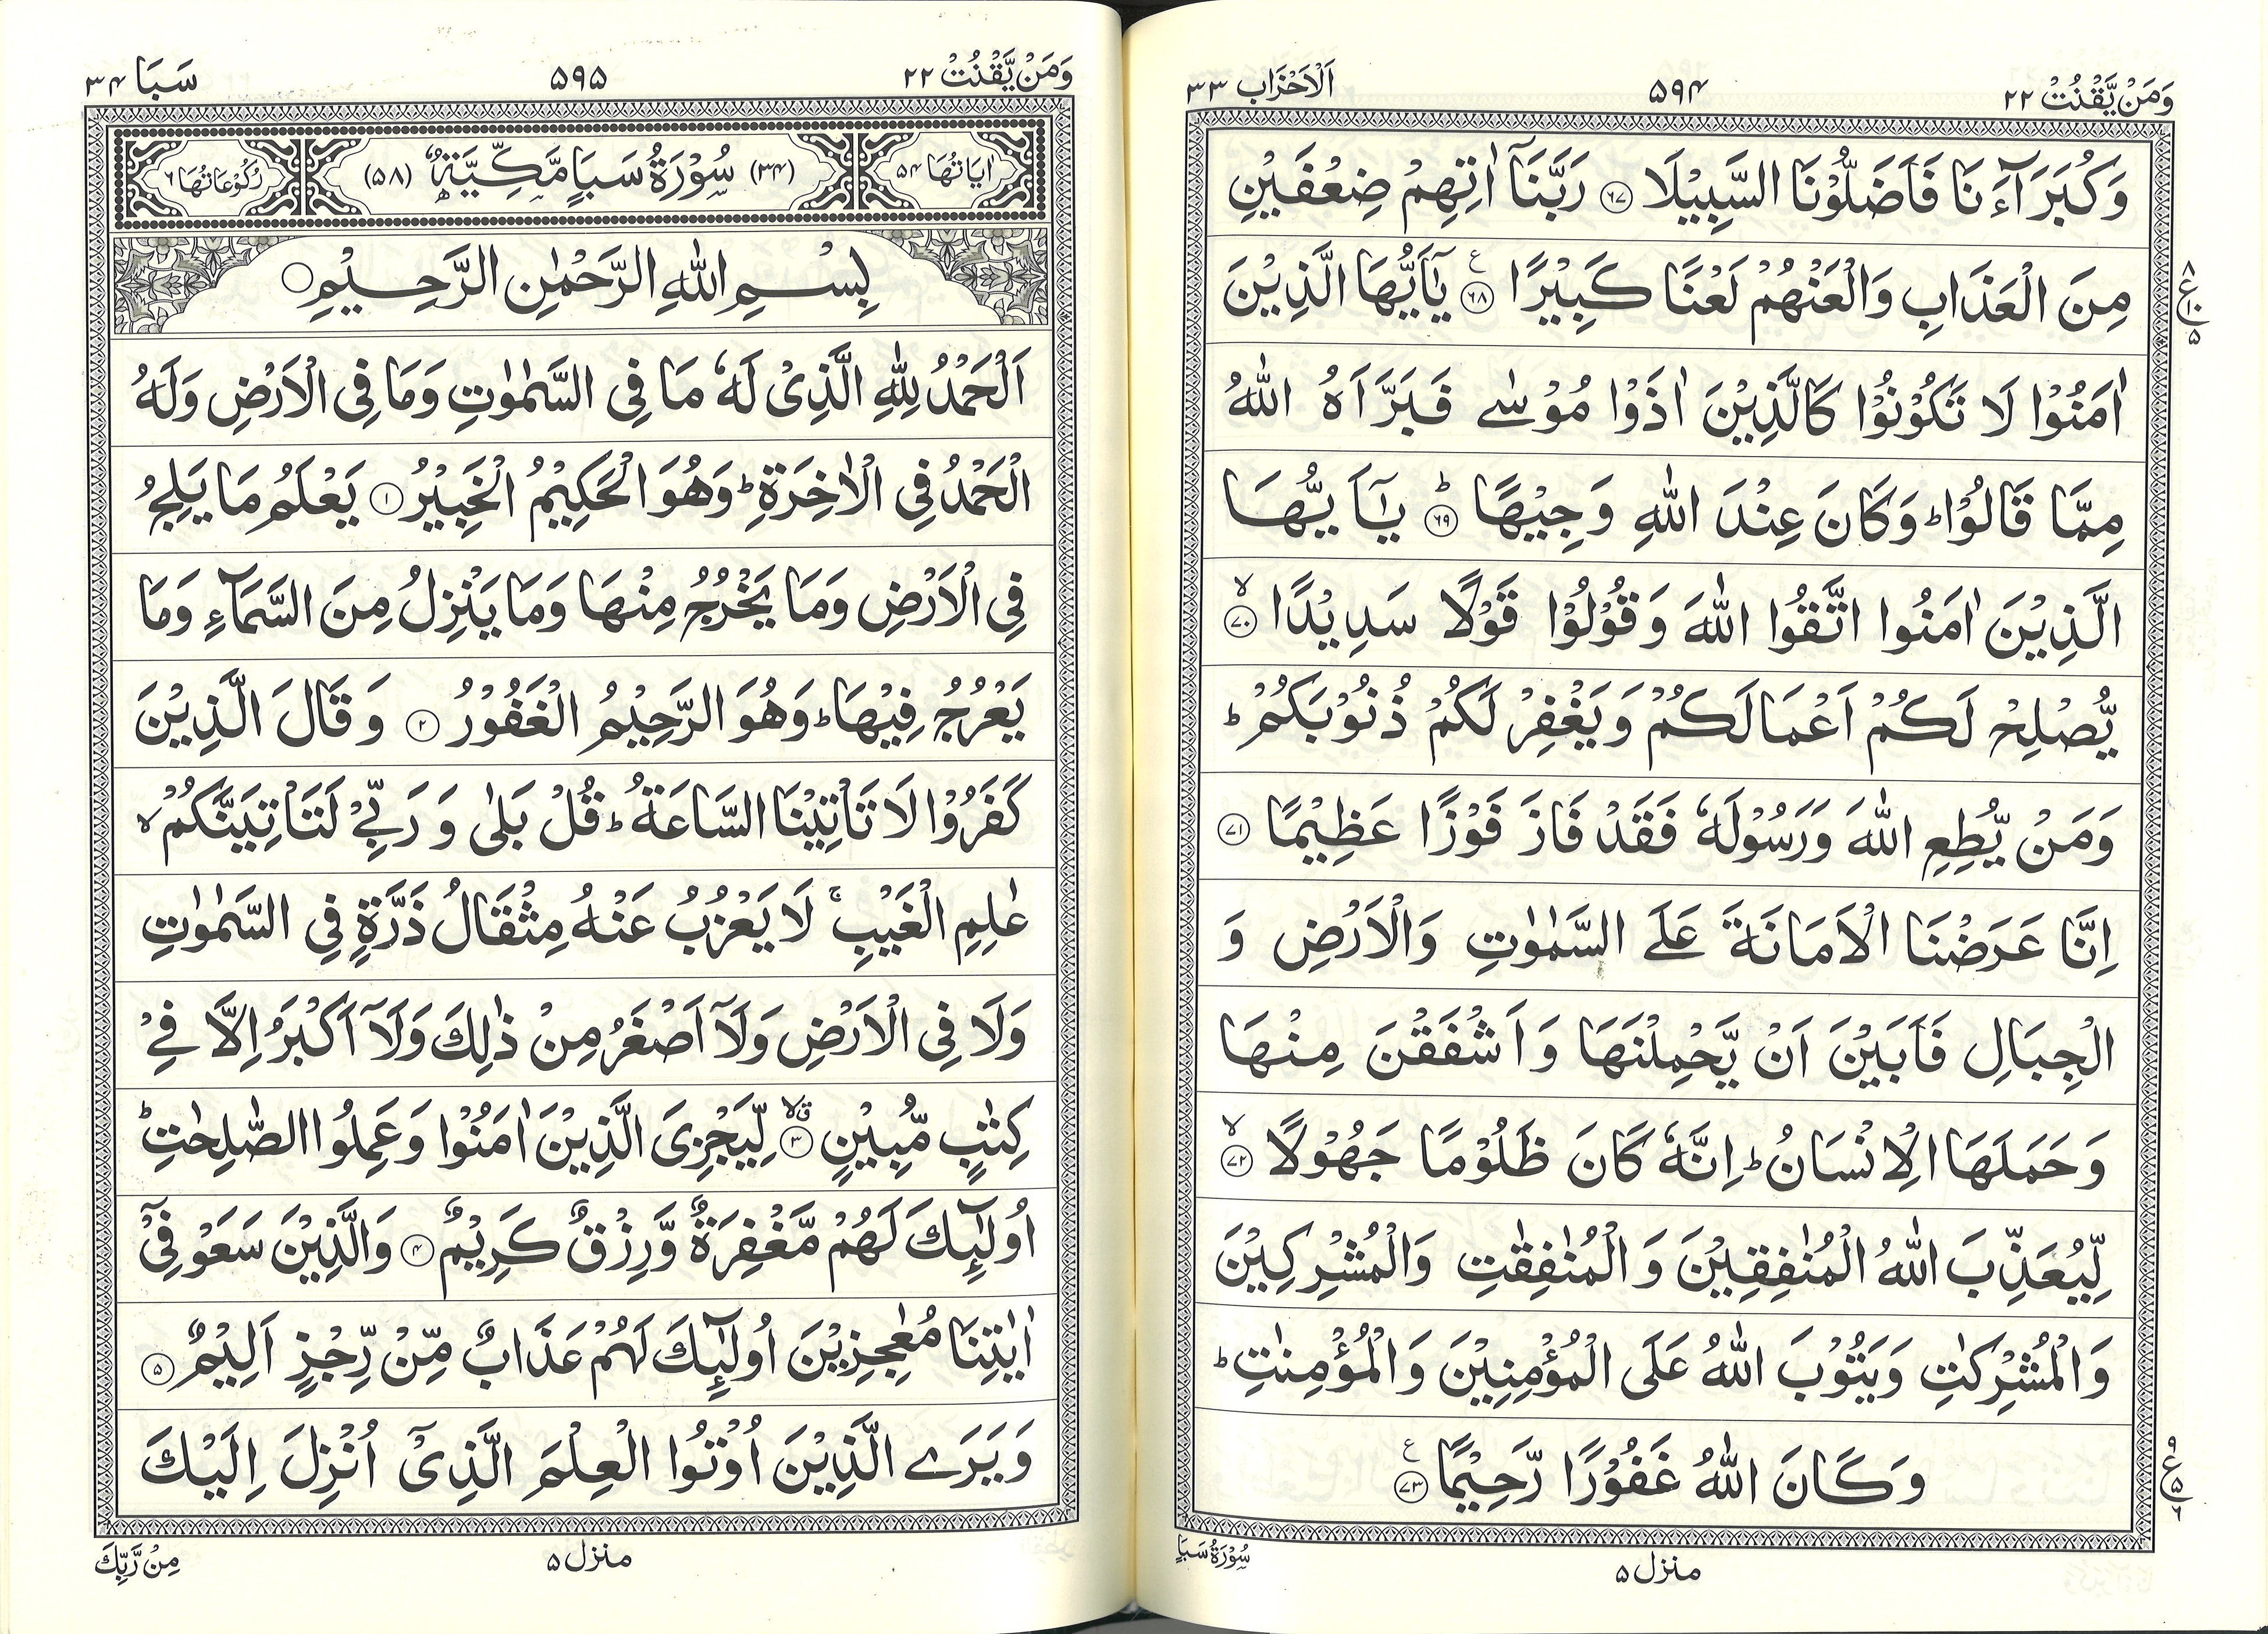 وَمَنْ يَّقْنُتْ ٢٢
۵۹۴
اَلْاَحْزَاب ٣٣
وَكُبَرَآءَنَا فَاَضَلُّوْنَا السَّبِيْلَا ﴿۶۷﴾ رَبَّنَآ اٰتِهِمْ ضِعْفَيْنِ
مِنَ الْعَذَابِ وَالْعَنْهُمْ لَعْنًا كَبِيْرًا ﴿۶۸﴾ ع يٰٓاَيُّهَا الَّذِيْنَ
اٰمَنُوْا لَا تَكُوْنُوْا كَالَّذِيْنَ اٰذَوْا مُوْسٰى فَبَرَّاَهُ اللّٰهُ
مِمَّا قَالُوْا ؕ وَكَانَ عِنْدَ اللّٰهِ وَجِيْهًا ؕ ﴿۶۹﴾ يٰٓاَيُّهَا
الَّذِيْنَ اٰمَنُوا اتَّقُوا اللّٰهَ وَقُوْلُوْا قَوْلًا سَدِيْدًا ۙ ﴿۷۰﴾
يُّصْلِحْ لَكُمْ اَعْمَالَكُمْ وَيَغْفِرْ لَكُمْ ذُنُوْبَكُمْ ؕ
وَمَنْ يُّطِعِ اللّٰهَ وَرَسُوْلَهٗ فَقَدْ فَازَ فَوْزًا عَظِيْمًا ﴿۷۱﴾
اِنَّا عَرَضْنَا الْاَمَانَةَ عَلَى السَّمٰوٰتِ وَالْاَرْضِ وَ
الْجِبَالِ فَاَبَيْنَ اَنْ يَّحْمِلْنَهَا وَاَشْفَقْنَ مِنْهَا
وَحَمَلَهَا الْاِنْسَانُ ؕ اِنَّهٗ كَانَ ظَلُوْمًا جَهُوْلًا ۙ ﴿۷۲﴾
لِّيُعَذِّبَ اللّٰهُ الْمُنٰفِقِيْنَ وَالْمُنٰفِقٰتِ وَالْمُشْرِكِيْنَ
وَالْمُشْرِكٰتِ وَيَتُوْبَ اللّٰهُ عَلَى الْمُؤْمِنِيْنَ وَالْمُؤْمِنٰتِ ؕ
وَكَانَ اللّٰهُ غَفُوْرًا رَّحِيْمًا ﴿۷۳﴾ ع
۸ ع ۱۰ ۵
۹ ع ۵ ۶
منزل ۵
سُوْرَةُ سَبَاٍ
وَمَنْ يَّقْنُتْ ٢٢
۵۹۵
سَبَا ٣۴
اٰيَاتُهَا ۵۴
(٣۴) سُوْرَةُ سَبَاٍ مَّكِّيَّةٌ (۵۸)
رُكُوْعَاتُهَا ۶
بِسْمِ اللّٰهِ الرَّحْمٰنِ الرَّحِيْمِ
اَلْحَمْدُ لِلّٰهِ الَّذِىْ لَهٗ مَا فِى السَّمٰوٰتِ وَمَا فِى الْاَرْضِ وَلَهُ
الْحَمْدُ فِى الْاٰخِرَةِ ؕ وَهُوَ الْحَكِيْمُ الْخَبِيْرُ ﴿۱﴾ يَعْلَمُ مَا يَلِجُ
فِى الْاَرْضِ وَمَا يَخْرُجُ مِنْهَا وَمَا يَنْزِلُ مِنَ السَّمَآءِ وَمَا
يَعْرُجُ فِيْهَا ؕ وَهُوَ الرَّحِيْمُ الْغَفُوْرُ ﴿۲﴾ وَقَالَ الَّذِيْنَ
كَفَرُوْا لَا تَاْتِيْنَا السَّاعَةُ ؕ قُلْ بَلٰى وَرَبِّىْ لَتَاْتِيَنَّكُمْ ۙ
عٰلِمِ الْغَيْبِ ۚ لَا يَعْزُبُ عَنْهُ مِثْقَالُ ذَرَّةٍ فِى السَّمٰوٰتِ
وَلَا فِى الْاَرْضِ وَلَآ اَصْغَرُ مِنْ ذٰلِكَ وَلَآ اَكْبَرُ اِلَّا فِىْ
كِتٰبٍ مُّبِيْنٍ ۙق ﴿۳﴾ لِّيَجْزِىَ الَّذِيْنَ اٰمَنُوْا وَعَمِلُوا الصّٰلِحٰتِ ؕ
اُولٰٓئِكَ لَهُمْ مَّغْفِرَةٌ وَّرِزْقٌ كَرِيْمٌ ﴿۴﴾ وَالَّذِيْنَ سَعَوْ فِىْٓ
اٰيٰتِنَا مُعٰجِزِيْنَ اُولٰٓئِكَ لَهُمْ عَذَابٌ مِّنْ رِّجْزٍ اَلِيْمٌ ﴿۵﴾
وَيَرَى الَّذِيْنَ اُوْتُوا الْعِلْمَ الَّذِىْٓ اُنْزِلَ اِلَيْكَ
منزل ۵
مِنْ رَّبِّكَ